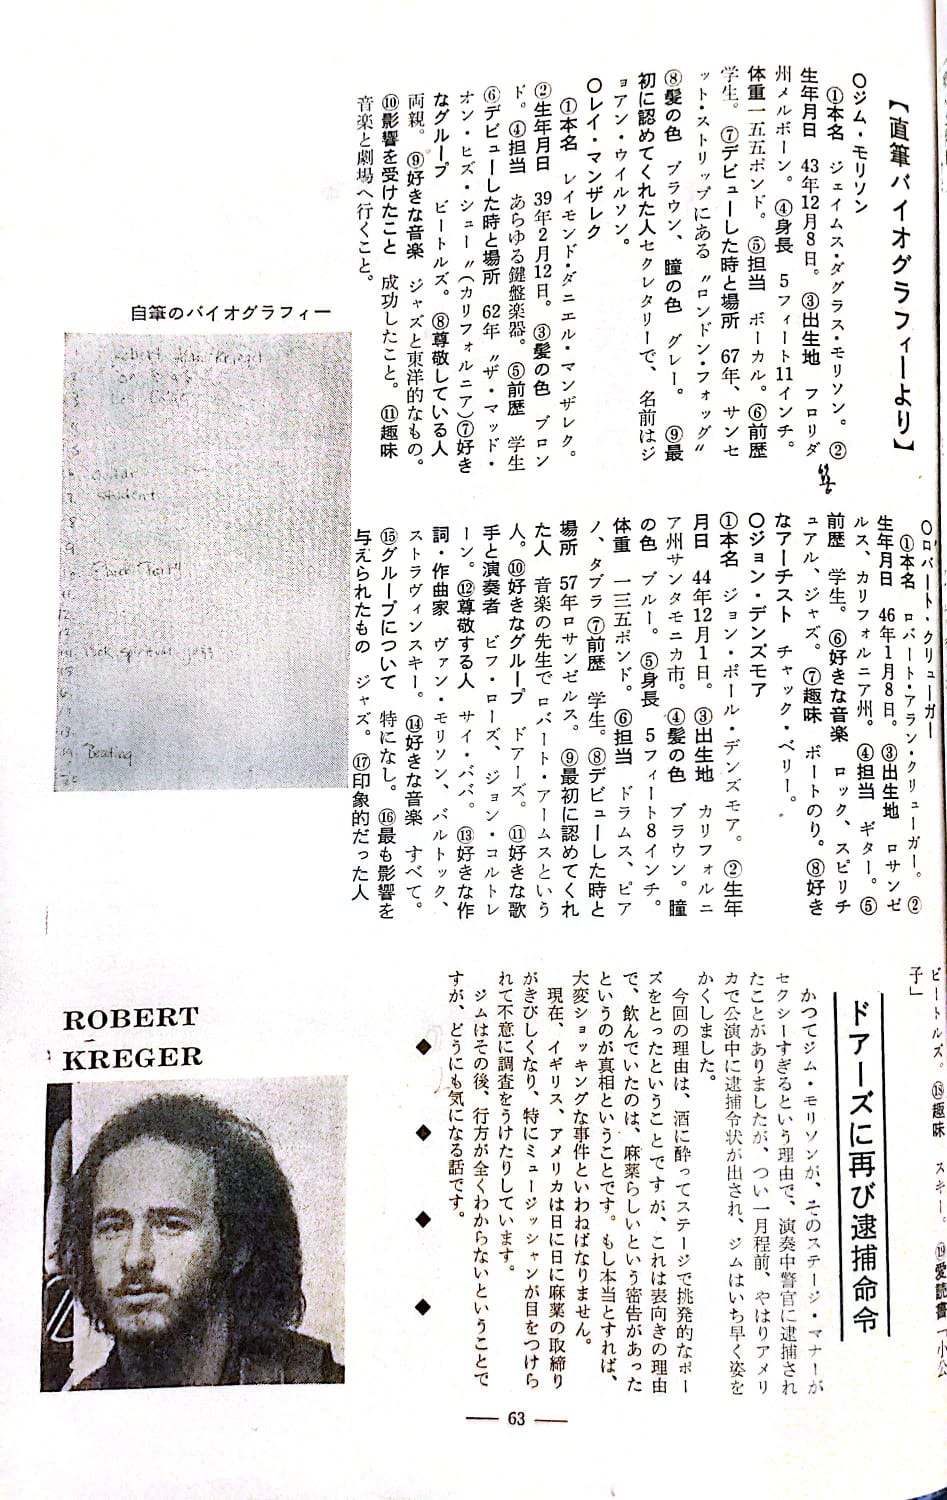 【直筆バイオグラフィーより】
〇ジム・モリソン
①本名　ジェイムス・ダグラス・モリソン。②
生年月日　43年12月8日。③出生地　フロリダ
州メルボーン。④身長　5フィート11インチ。
体重一五五ポンド。⑤担当　ボーカル。⑥前歴
学生。⑦デビューした時と場所　67年、サンセ
ット・ストリップにある〝ロンドン・フォッグ〟
⑧髪の色　ブラウン、瞳の色　グレー。⑨最
初に認めてくれた人セクレタリーで、名前はジ
ョアン・ウイルソン。
〇レイ・マンザレク
①本名　レイモンド・ダニエル・マンザレク。
②生年月日　39年2月12日。③髪の色　ブロン
ド。④担当　あらゆる鍵盤楽器。⑤前歴　学生
⑥デビューした時と場所　62年〝ザ・マッド・
オン・ヒズ・シュー〟（カリフォルニア）⑦好き
なグループ　ビートルズ。⑧尊敬している人
両親。⑨好きな音楽　ジャズと東洋的なもの。
⑩影響を受けたこと　成功したこと。⑪趣味
音楽と劇場へ行くこと。
自筆のバイオグラフィー
Robert Alan Krieger
Los
Guitar
Student
Chuck Berry
rock, spiritual, jazz
Boating
〇ロバート・クリューガー
①本名　ロバート・アラン・クリューガー。②
生年月日　46年1月8日。③出生地　ロサンゼ
ルス、カリフォルニア州。④担当　ギター。⑤
前歴　学生。⑥好きな音楽　ロック、スピリチ
ュアル、ジャズ。⑦趣味　ボートのり。⑧好き
なアーチスト　チャック・ベリー。
〇ジョン・デンズモア
①本名　ジョン・ポール・デンズモア。②生年
月日　44年12月1日。③出生地　カリフォルニ
ア州サンタモニカ市。④髪の色　ブラウン。瞳
の色　ブルー。⑤身長　5フィート8インチ。
体重　一三五ポンド。⑥担当　ドラムス、ピア
ノ、タブラ⑦前歴　学生。⑧デビューした時と
場所　57年ロサンゼルス。⑨最初に認めてくれ
た人　音楽の先生でロバート・アームスという
人。⑩好きなグループ　ドアーズ。⑪好きな歌
手と演奏者　ビフ・ローズ、ジョン・コルトレ
ーン。⑫尊敬する人　サイ・ババ。⑬好きな作
詞・作曲家　ヴァン・モリソン、バルトック、
ストラヴィンスキー。⑭好きな音楽　すべて。
⑮グループについて　特になし。⑯最も影響を
与えられたもの　ジャズ。⑰印象的だった人
ビートルズ。⑱趣味　スキー。⑲愛読書「小公
子」
ドアーズに再び逮捕命令
かつてジム・モリソンが、そのステージ・マナーが
セクシーすぎるという理由で、演奏中警官に逮捕され
たことがありましたが、つい一月程前、やはりアメリ
カで公演中に逮捕令状が出され、ジムはいち早く姿を
かくしました。
今回の理由は、酒に酔ってステージで挑発的なポー
ズをとったということですが、これは表向きの理由
で、飲んでいたのは、麻薬らしいという密告があった
というのが真相ということです。もし本当とすれば、
大変ショッキングな事件といわねばなりません。
現在、イギリス、アメリカは日に日に麻薬の取締り
がきびしくなり、特にミュージッシャンが目をつけら
れて不意に調査をうけたりしています。
ジムはその後、行方が全くわからないということで
すが、どうにも気になる話です。
◆　◆　◆　◆
ROBERT
KREGER
― 63 ―